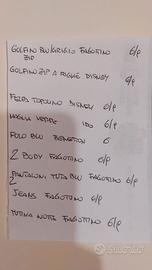 GOLFINO BLU/GRIGIO FAGOTTINO 6/9
ZIP
GOLFINO ZIP A RIGHE DISNEY 6/9
FELPA TOPOLINO DISNEY 6/9
MAGLIA VERDE IDO 6/9
POLO BLU BENETTON 6
2 BODY FAGOTTINO 6/9
2 PANTALONI TUTA BLU FAGOTTINO 6/9
JEANS FAGOTTINO 6/9
TUTINA NOTTE FAGOTTINO 6/9
subito